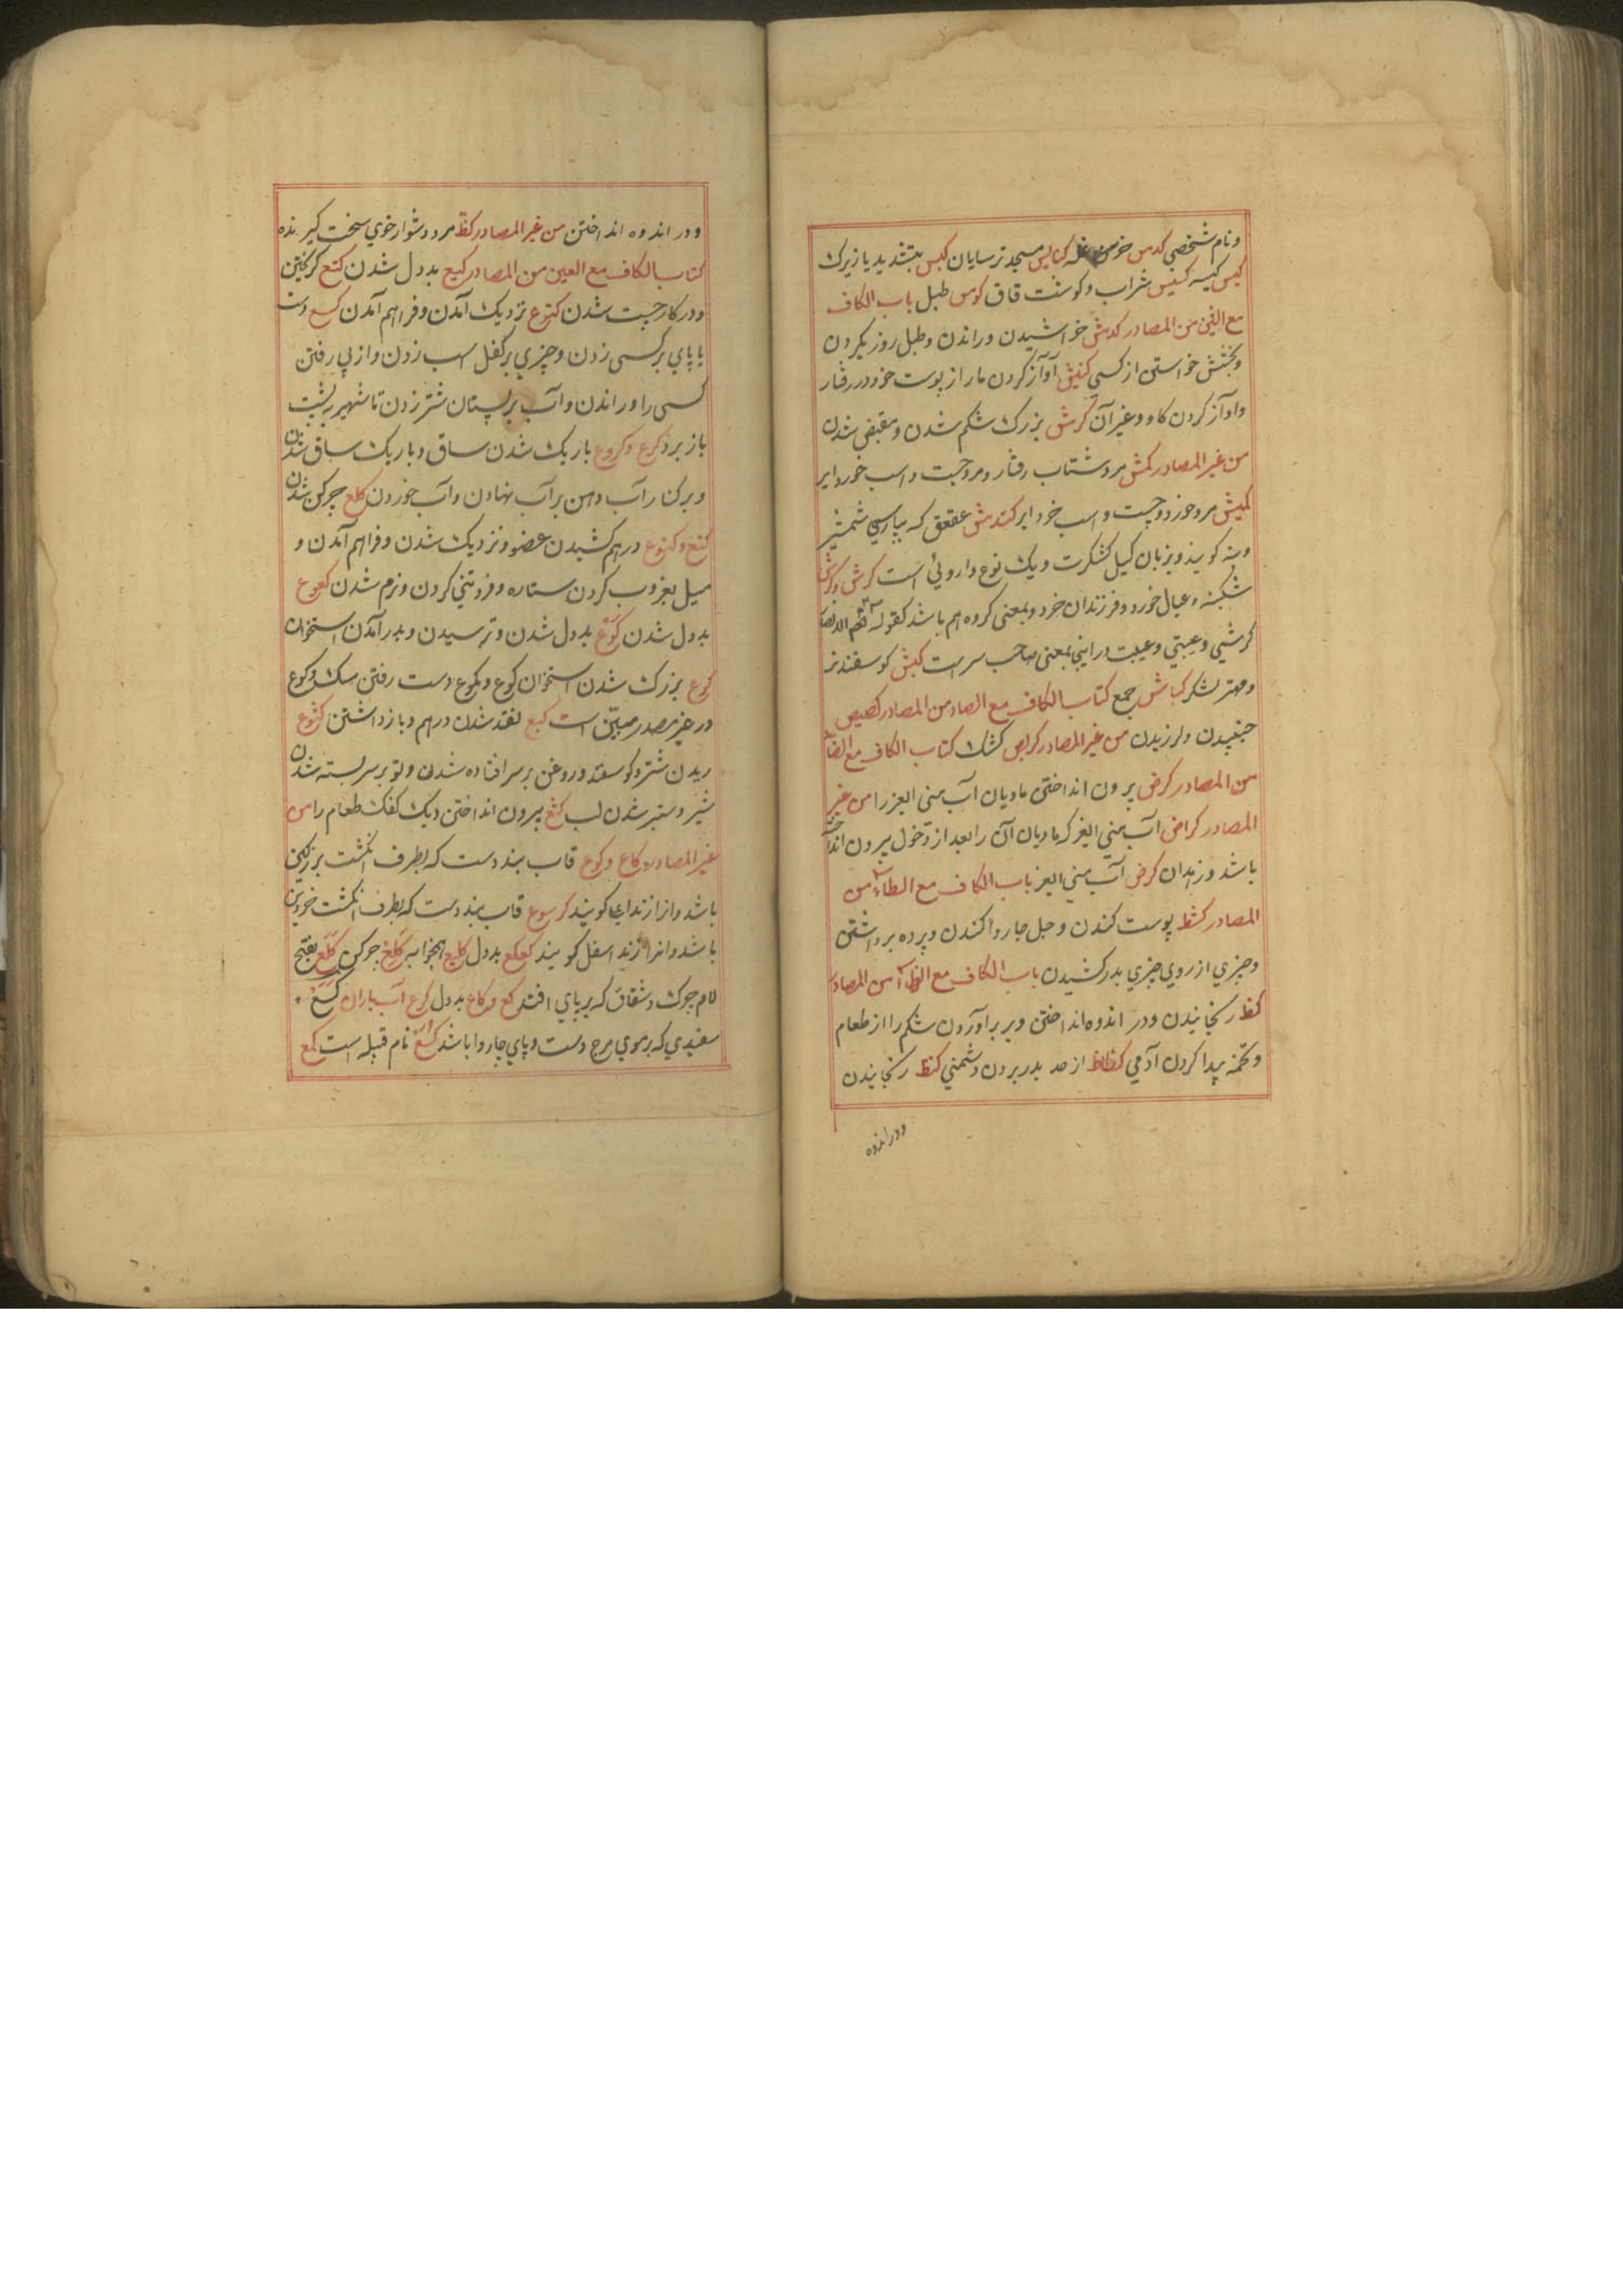 ونام شخصي كدس خرمن غله كنايس مسجد ترسايان كيس بتشديد يا زيرك
كيس كيسه كسيس شراب وكوشت قاق كوس طبل باب الكاف
مع الشين من المصادر كدش خراشيدن وراندن وطبل روزي كردن
وبخشش خواستن از كسي كشيش آواز كردن مار از پوست خود در رفتار
واواز كردن كاو وغير آن كرش بزرك شكم شدن ومقبض شدن
من غير المصادر كمش مرد شتاب رفتار ومرد چست واسب خرد اير
كميش مرد خرد وچست واسب خرد اير كندش عقعق كه بپارسي
كويند وبزبان كيل كشكرت ويك نوع داروئي است كرش وكرش
شكنبه وعيال خورد وفرزندان خرد وبمعني كروه هم باشد كقوله
كرشي وعيبتي وعيبت دراينجا بمعني صاحب سر است كبش كوسفند نر
ومهتر لشكر كباش جمع كتاب الكاف مع الصاد من المصادر كصيص
جنبيدن ولرزيدن من غير المصادر كريص كشك كتاب الكاف مع الضاد
من المصادر كرض برون انداختن ماديان آب مني را من غير
المصادر كراض آب مني كه ماديان آن را بعد از دخول بيرون انداخته
باشد وزهدان كرض آب مني باب الكاف مع الطاء من
المصادر كشط پوست كندن وجل جاروا كندن وپرده برداشتن
وچيزي از روي چيزي بدر كشيدن باب الكاف مع الظاء من المصادر
كظ رنجانيدن ودر اندوه انداختن وپر برآوردن شكم را از طعام
وتخمه پيدا كردن آدمي كظاظ از حد بدر بردن دشمني كنظ رنجانيدن
ودر اندوه
ودر اندوه انداختن من غير المصادر كظ مرد دشوار خوي سخت كيرنده
كتاب الكاف مع العين من المصادر كيع بددل شدن كتع كريختن
ودر كار چست شدن كتوع نزديك آمدن وفراهم آمدن كسع دست
يا پاي بر كسي زدن وچيزي بر كفل اسب زدن واز پي رفتن
كسي را وراندن وآب بر پستان شتر زدن تا شير به پشت
باز برد كرع وكروع باريك شدن ساق وباريك ساق شدن
وبر كنار آب دهن بر آب نهادن وآب خوردن كلع چركن شدن
كنع وكنوع درهم كشيدن عضو ونزديك شدن وفراهم آمدن و
ميل بغروب كردن ستاره وفروتني كردن ونرم شدن كعوع
بددل شدن كوع بددل شدن وترسيدن وبدر آمدن استخوان
كوع بزرك شدن استخوان كوع وكوع دست رفتن سك وكوع
در غير مصدر مبين است كبع نقد شدن درهم وباز داشتن كثوع
ريدن شتر وكوسفند وروغن بر سر افتاده شدن وتو بر سر بسته شدن
شير وستبر شدن لب كثع بيرون انداختن ديك كفك طعام را من
غير المصادر كاع وكوع قاب بند دست كه بطرف انكشت بزركين
باشد وانرا زند اعلي كويند كرسوع قاب بند دست كه بطرف انكشت خردين
باشد وانرا زند اسفل كويند كعكع بددل كليع همخوابه كلع چركن كلع بفتح
لام چرك وشقاق كه بر پاي افتد كع وكاع بددل كرع آب باران كسع
سفيدي كه بر موي مرج دست وپاي جاروا باشد كسع نام قبيله است كمع